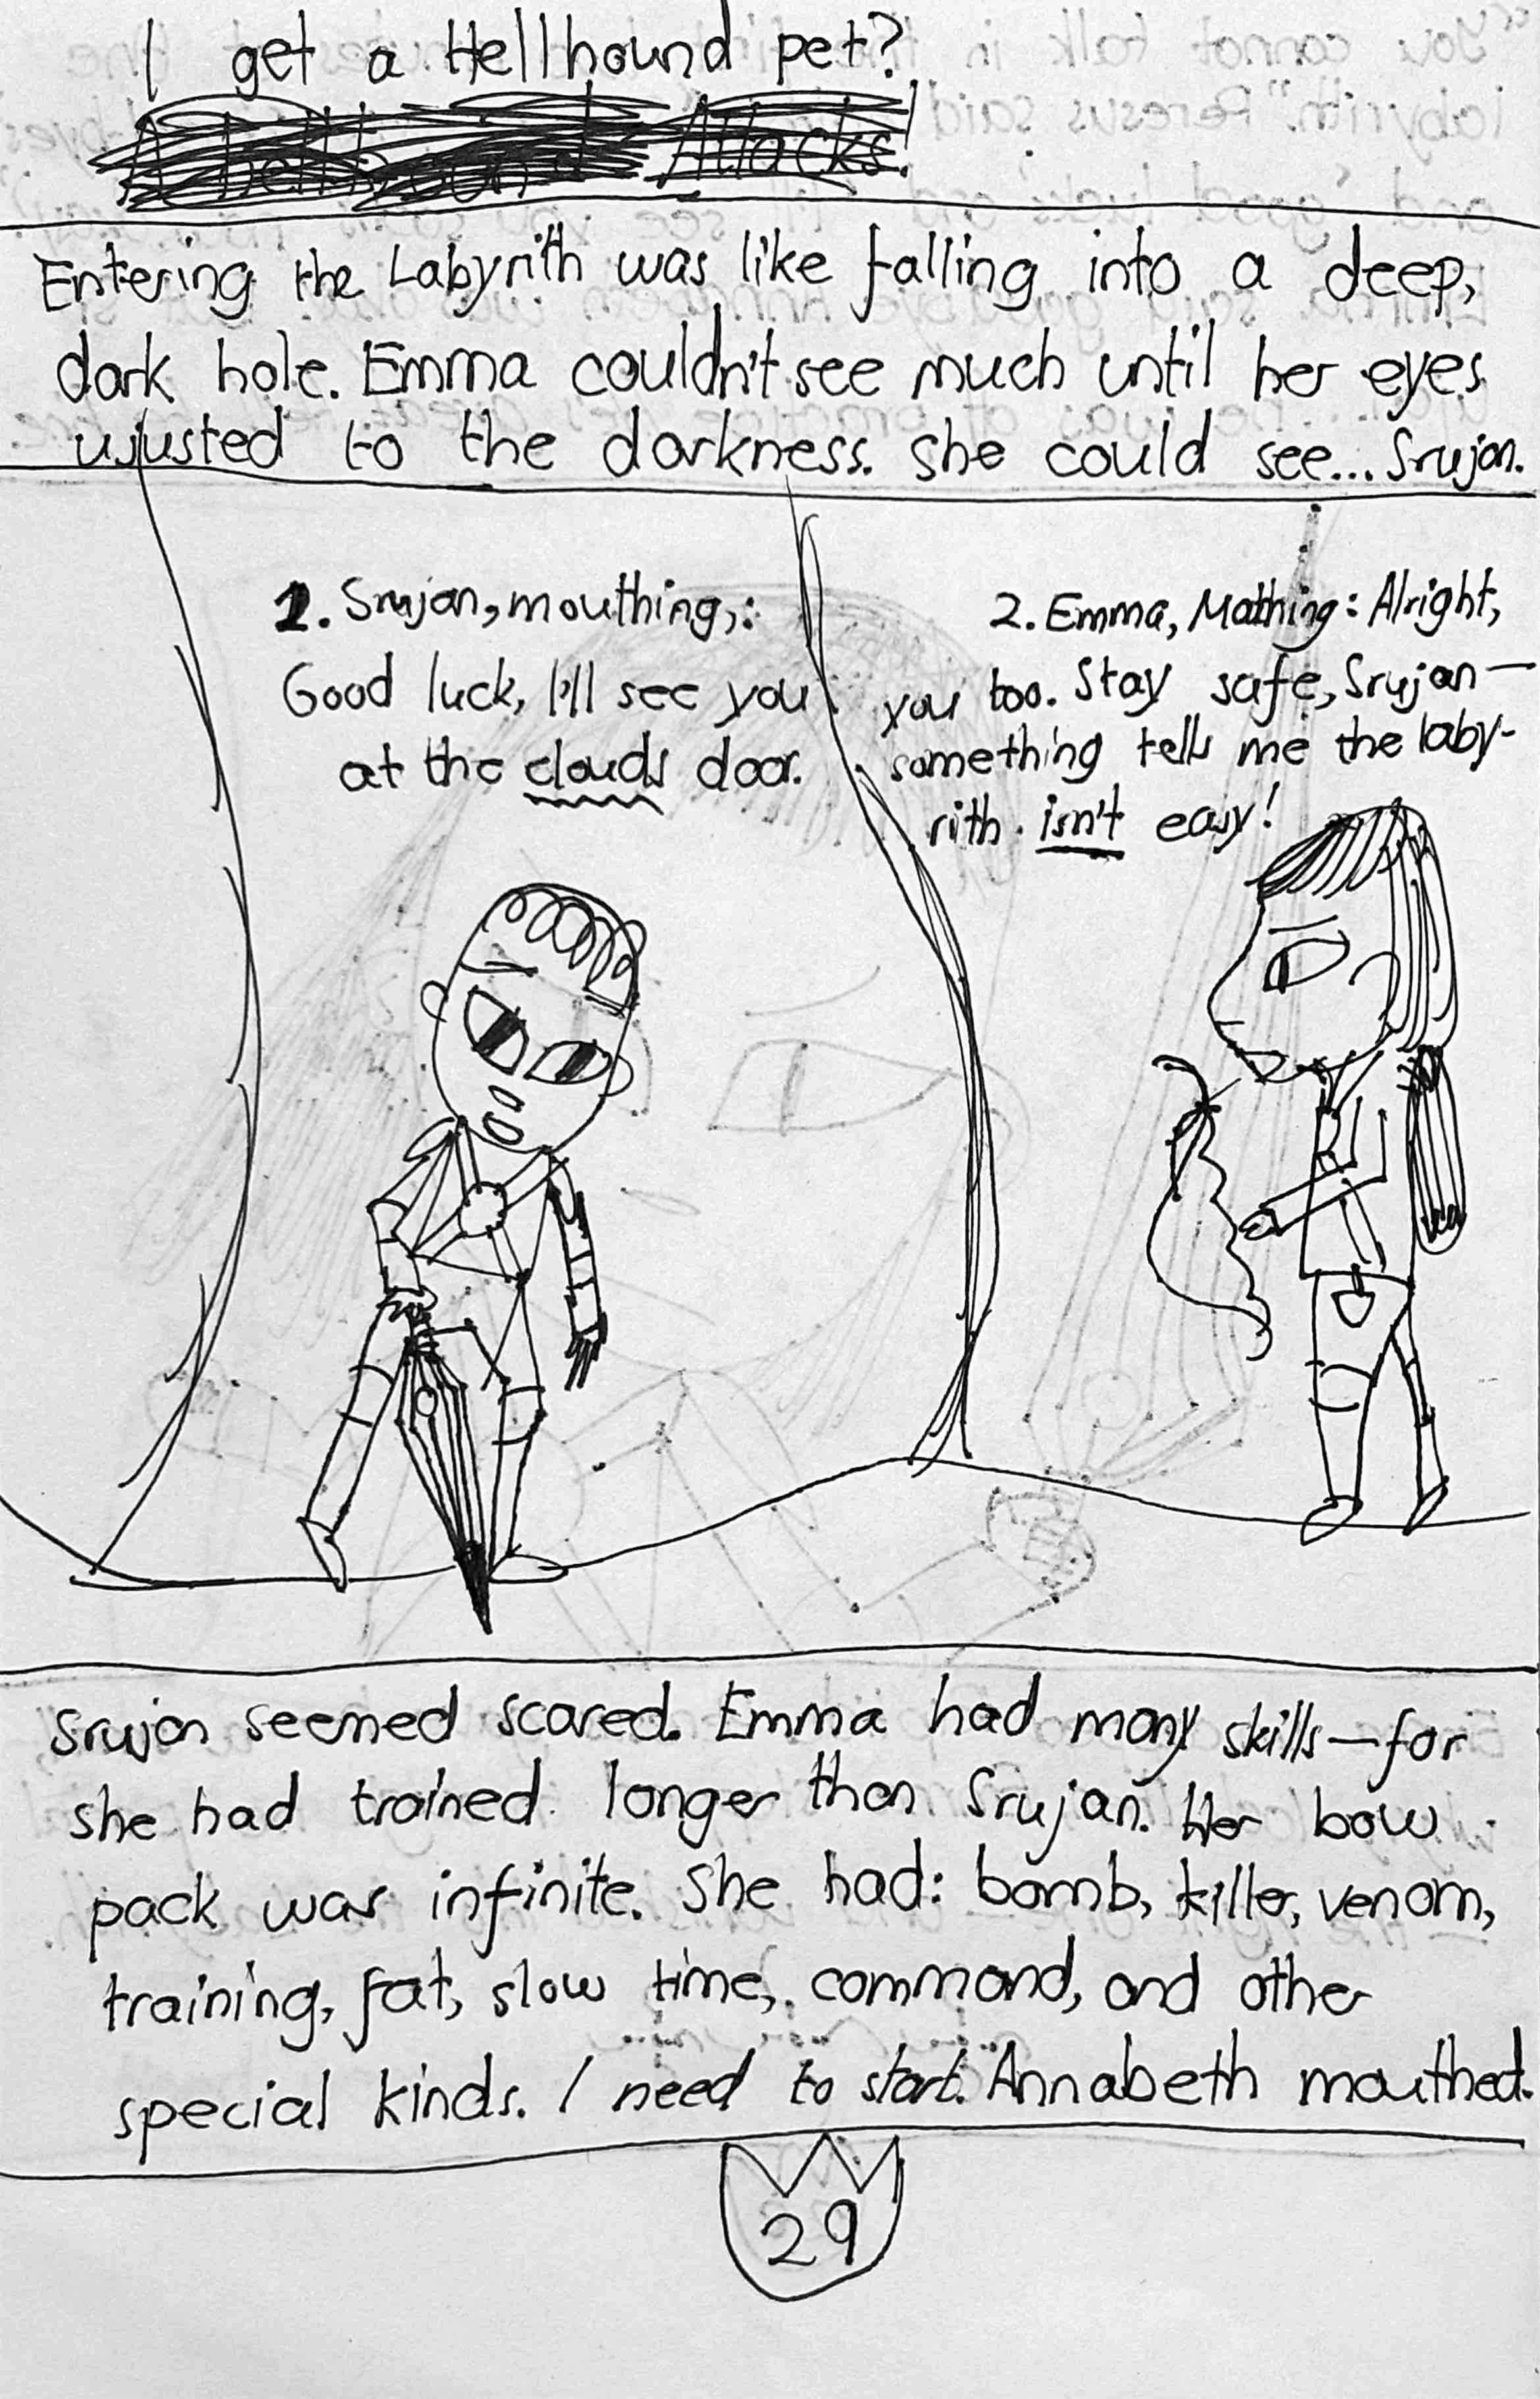 I get a Hellhound pet?
Attacks!
Entering the Labyrith was like falling into a deep,
dark hole. Emma couldn't see much until her eyes
ujusted to the darkness. She could see... Srujan.
1. Srujan, mouthing,:
Good luck, I'll see you
at the clouds door.
2. Emma, Mothing: Alright,
you too. Stay safe, Srujan—
something tells me the laby-
rith isn't easy!
Srujan seemed scared. Emma had many skills—for
she had trained longer than Srujan. Her bow
pack was infinite. She had: bomb, killer, venom,
training, fat, slow time, command, and other
special kinds. I need to start. Annabeth mouthed.
29